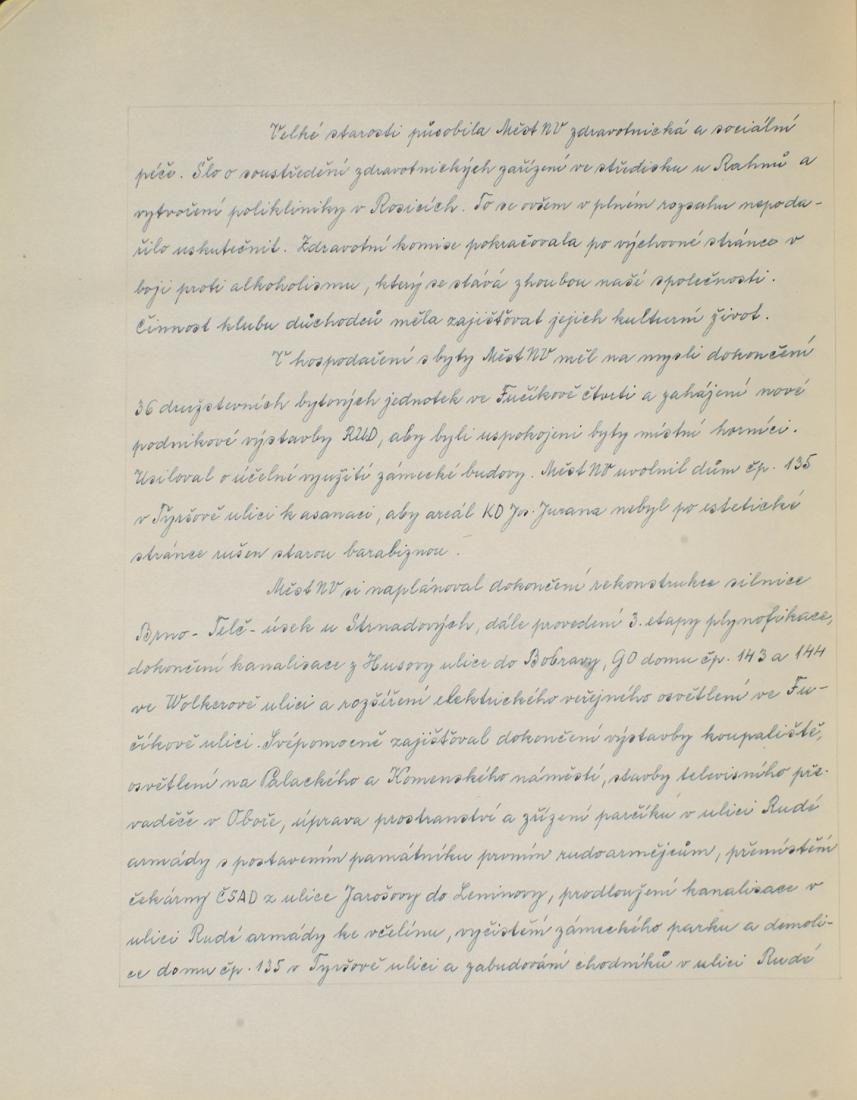 Velké starosti působila MěstNV zdravotnická a sociální
péče. Šlo o soustředění zdravotnických zařízení ve středisku u Rahmů a
vytvoření polikliniky v Rosicích. To se ovšem v plném rozsahu nepoda-
řilo uskutečnit. Zdravotní komise pokračovala po výchovné stránce v
boji proti alkoholismu, který se stává zhoubou naší společnosti.
Činnost klubu důchodců měla zajišťovat jejich kulturní život.
V hospodaření s byty MěstNV měl na mysli dokončení
36 družstevních bytových jednotek ve Fučíkově čtvrti a zahájení nové
podnikové výstavby RUD, aby byli uspokojeni byty místní horníci.
Usiloval o účelné využití zámecké budovy. MěstNV uvolnil dům čp. 135
v Tyršově ulici k asanaci, aby areál KD Jos. Jurana nebyl po estetické
stránce rušen starou barabiznou.
MěstNV si naplánoval dokončení rekonstrukce silnice
Brno - Telč - úsek u Strnadových, dále provedení 3. etapy plynofikace,
dokončení kanalisace z Husovy ulice do Bobravy, GO domu čp. 143 a 144
ve Wolkerově ulici a rozšíření elektrického veřejného osvětlení ve Fu-
číkově ulici. Svépomocně zajišťoval dokončení výstavby koupaliště,
osvětlení na Palackého a Komenského náměstí, stavby televisního pře-
vaděče v Oboře, úprava prostranství a zřízení parčíku v ulici Rudé
armády s postavením památníku prvním rudoarmějcům, přemístění
čekárny ČSAD z ulice Jarošovy do Leninovy, prodloužení kanalisace v
ulici Rudé armády ke včelínu, vyčistění zámeckého parku a demoli-
ce domu čp. 135 v Tyršově ulici a zabudování chodníků v ulici Rudé